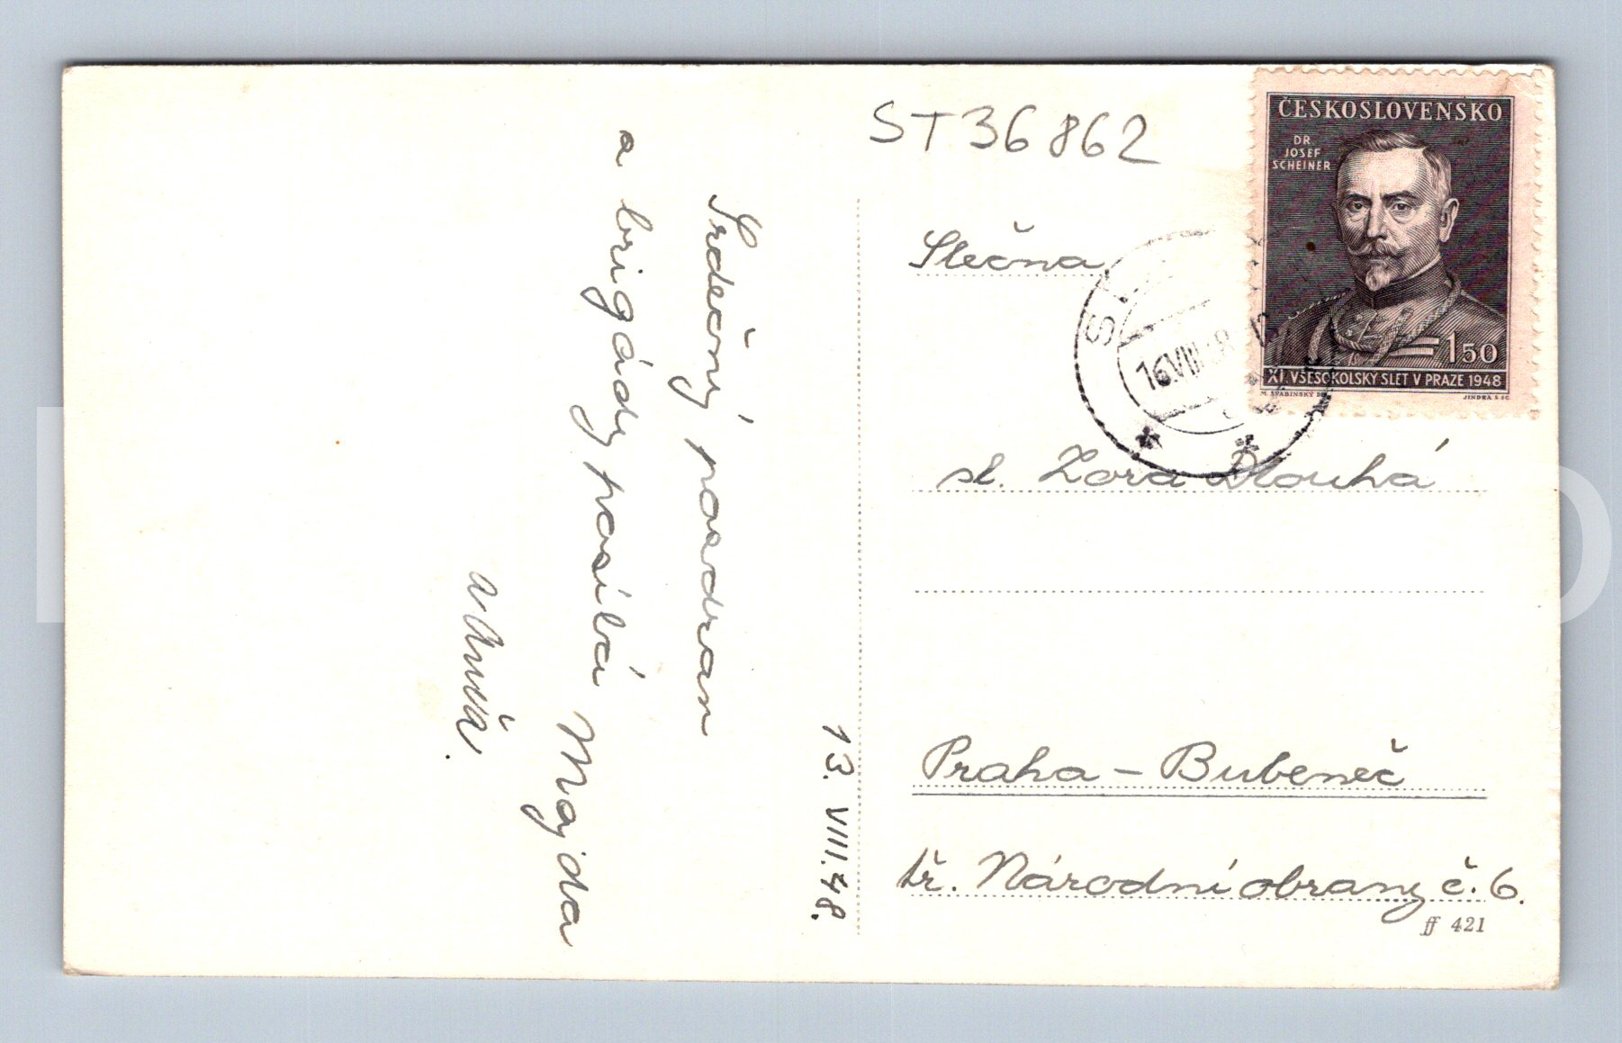 ST36862
ČESKOSLOVENSKO
DR.
JOSEF
SCHEINER
1.50
XI. VŠESOKOLSKÝ SLET V PRAZE 1948
M. ŠVABINSKÝ DEL.
JINDRA SC
S
16.VIII.48
Slečna
sl. Zora Dlouhá
Praha - Bubeneč
tř. Národní obrany č. 6.
ff 421
13. VIII. 48.
Srdečný pozdrav
z brigády posílá Majda